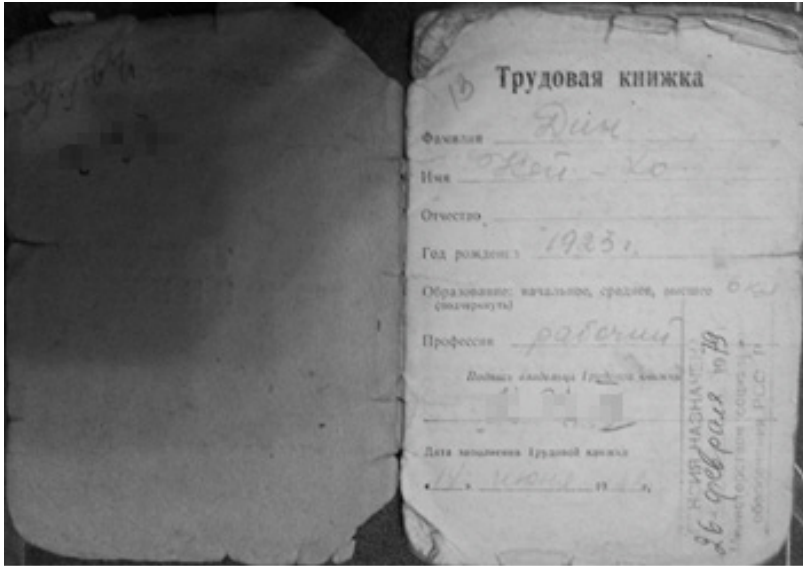 13
Трудовая книжка
Фамилия Дин
Имя Хо
Отчество
Год рождения 1923 г.
Образование: начальное, среднее, высшее 6 кл
(подчеркнуть)
Профессия рабочий
Подпись владельца Трудовой книжки
Дата заполнения Трудовой книжки
" 14 " июня 19 г.
НАЗНАЧЕНА
26 февраля 1979
Министерством социаль
обеспечения РСФСР